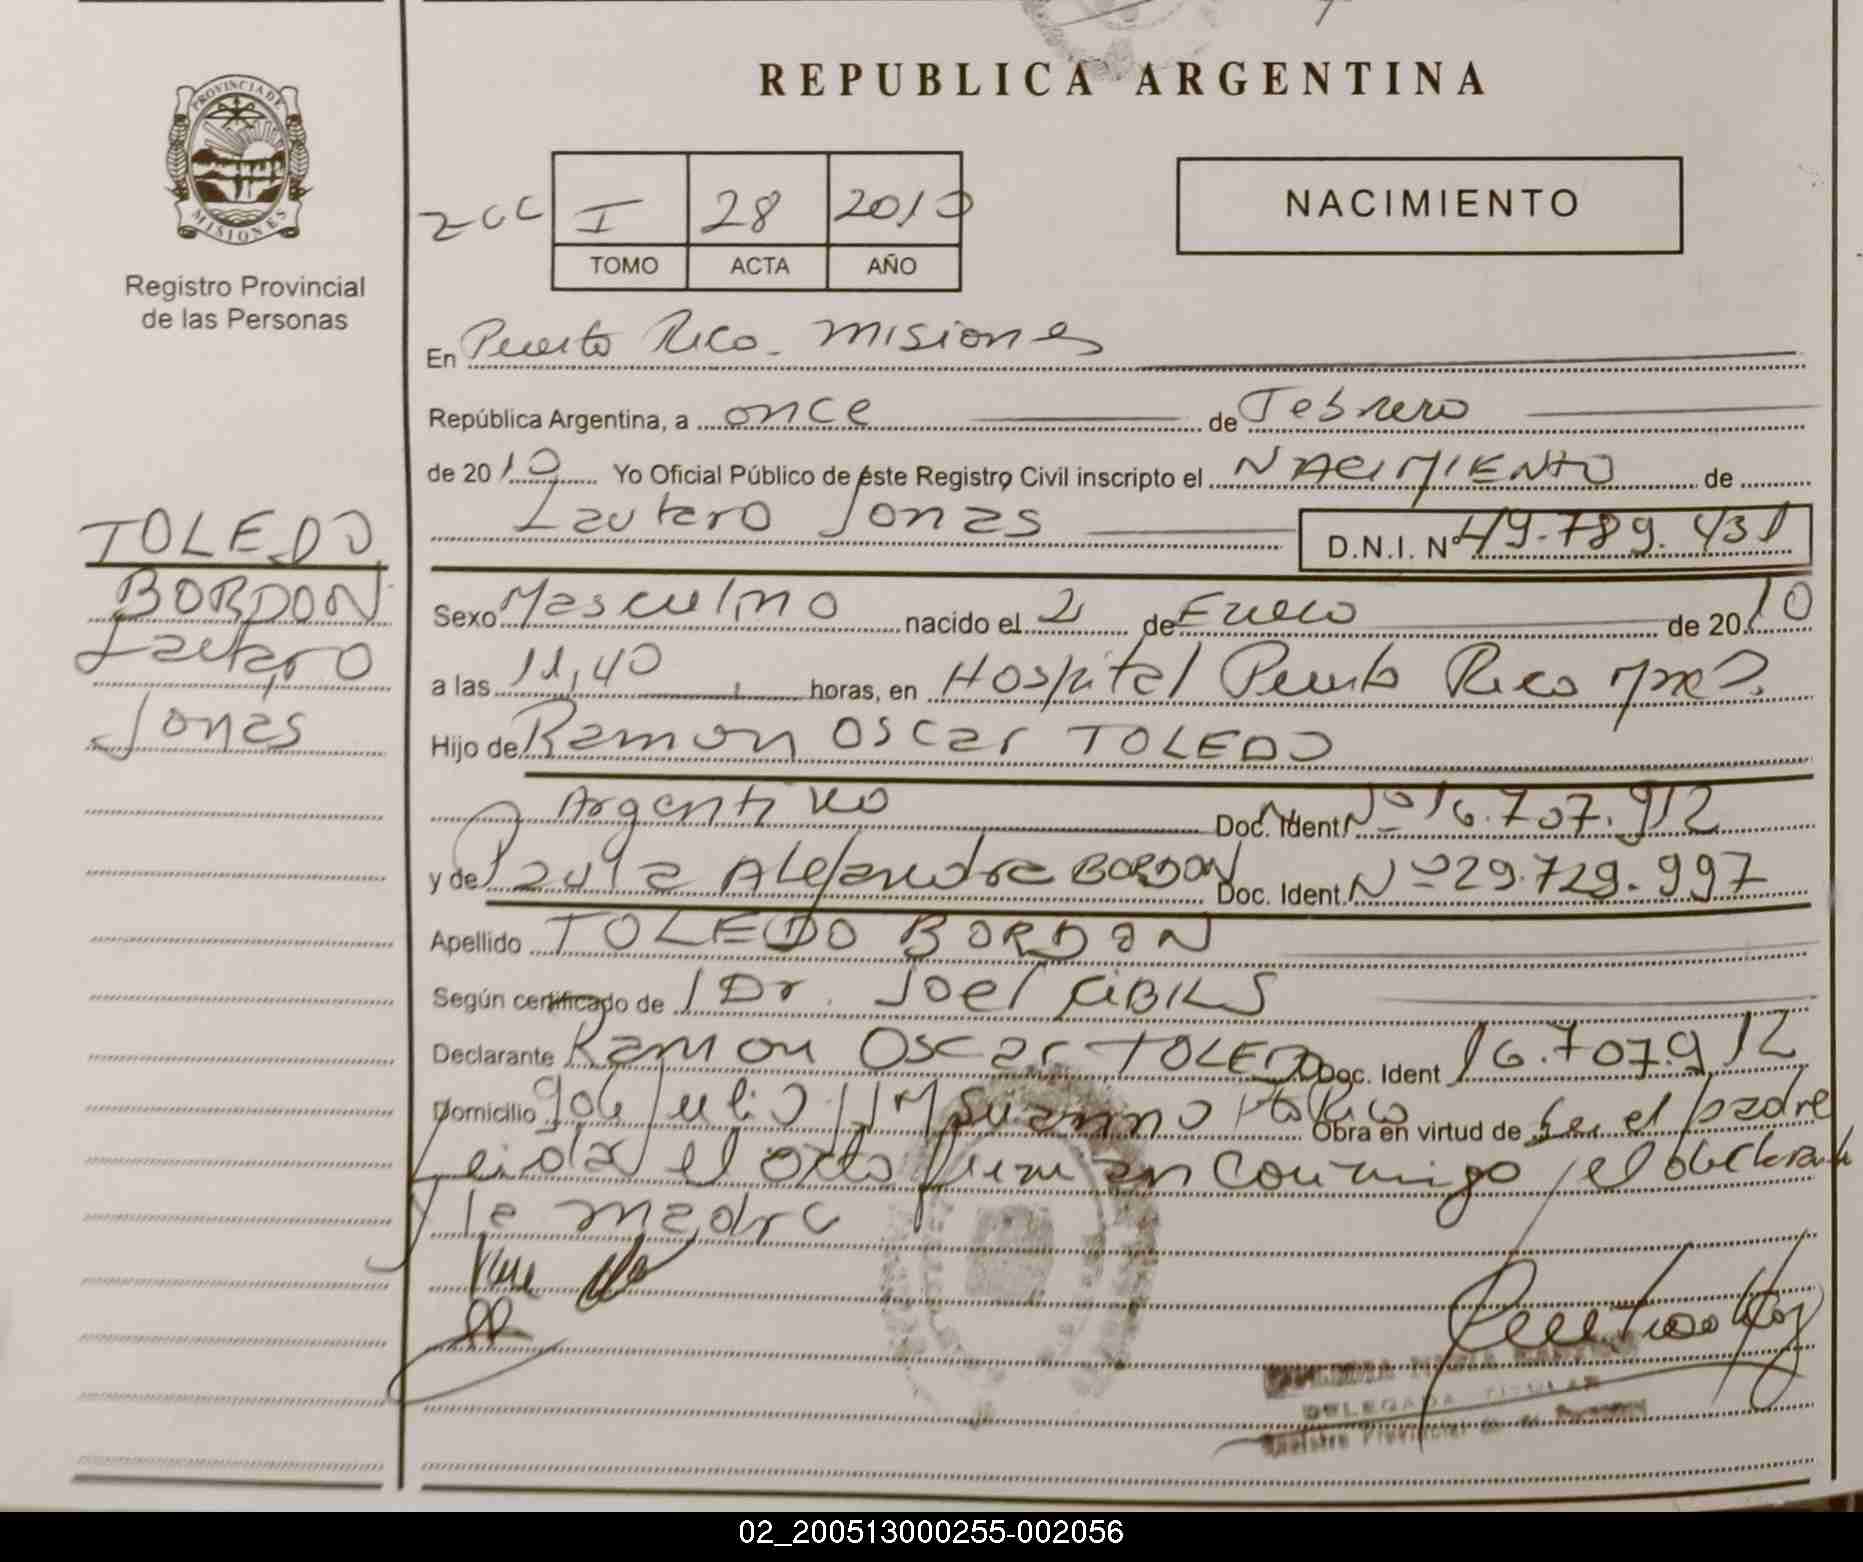 REPUBLICA ARGENTINA
PROVINCIA DE
MISIONES
Registro Provincial
de las Personas
I 28 2010
TOMO ACTA AÑO
NACIMIENTO
En Puerto Rico - Misiones
República Argentina, a once de Febrero
de 2010 Yo Oficial Público de éste Registro Civil inscripto el NACIMIENTO de
Lautaro Jonas D.N.I. Nº 49.789.431
TOLEDO
BORDON
Lautaro
Jonas
Sexo Masculino nacido el 21 de Enero de 2010
a las 11,40 horas, en Hospital Puerto Rico Mnes.
Hijo de Ramon Oscar TOLEDO
Argentino Doc. Ident. Nº 16.707.912
y de Paula Alejandra BORDON Doc. Ident. Nº 29.729.997
Apellido TOLEDO BORDON
Según certificado de Dr. Joel CIBILS
Declarante Ramon Oscar TOLEDO Doc. Ident 16.707.912
Domicilio 9 de Julio Pto Rico Obra en virtud de Ser el padre
Leida el acta firman conmigo el declarante
y la madre
DELEGADA TITULAR
Registro Provincial de las Personas
02_200513000255-002056